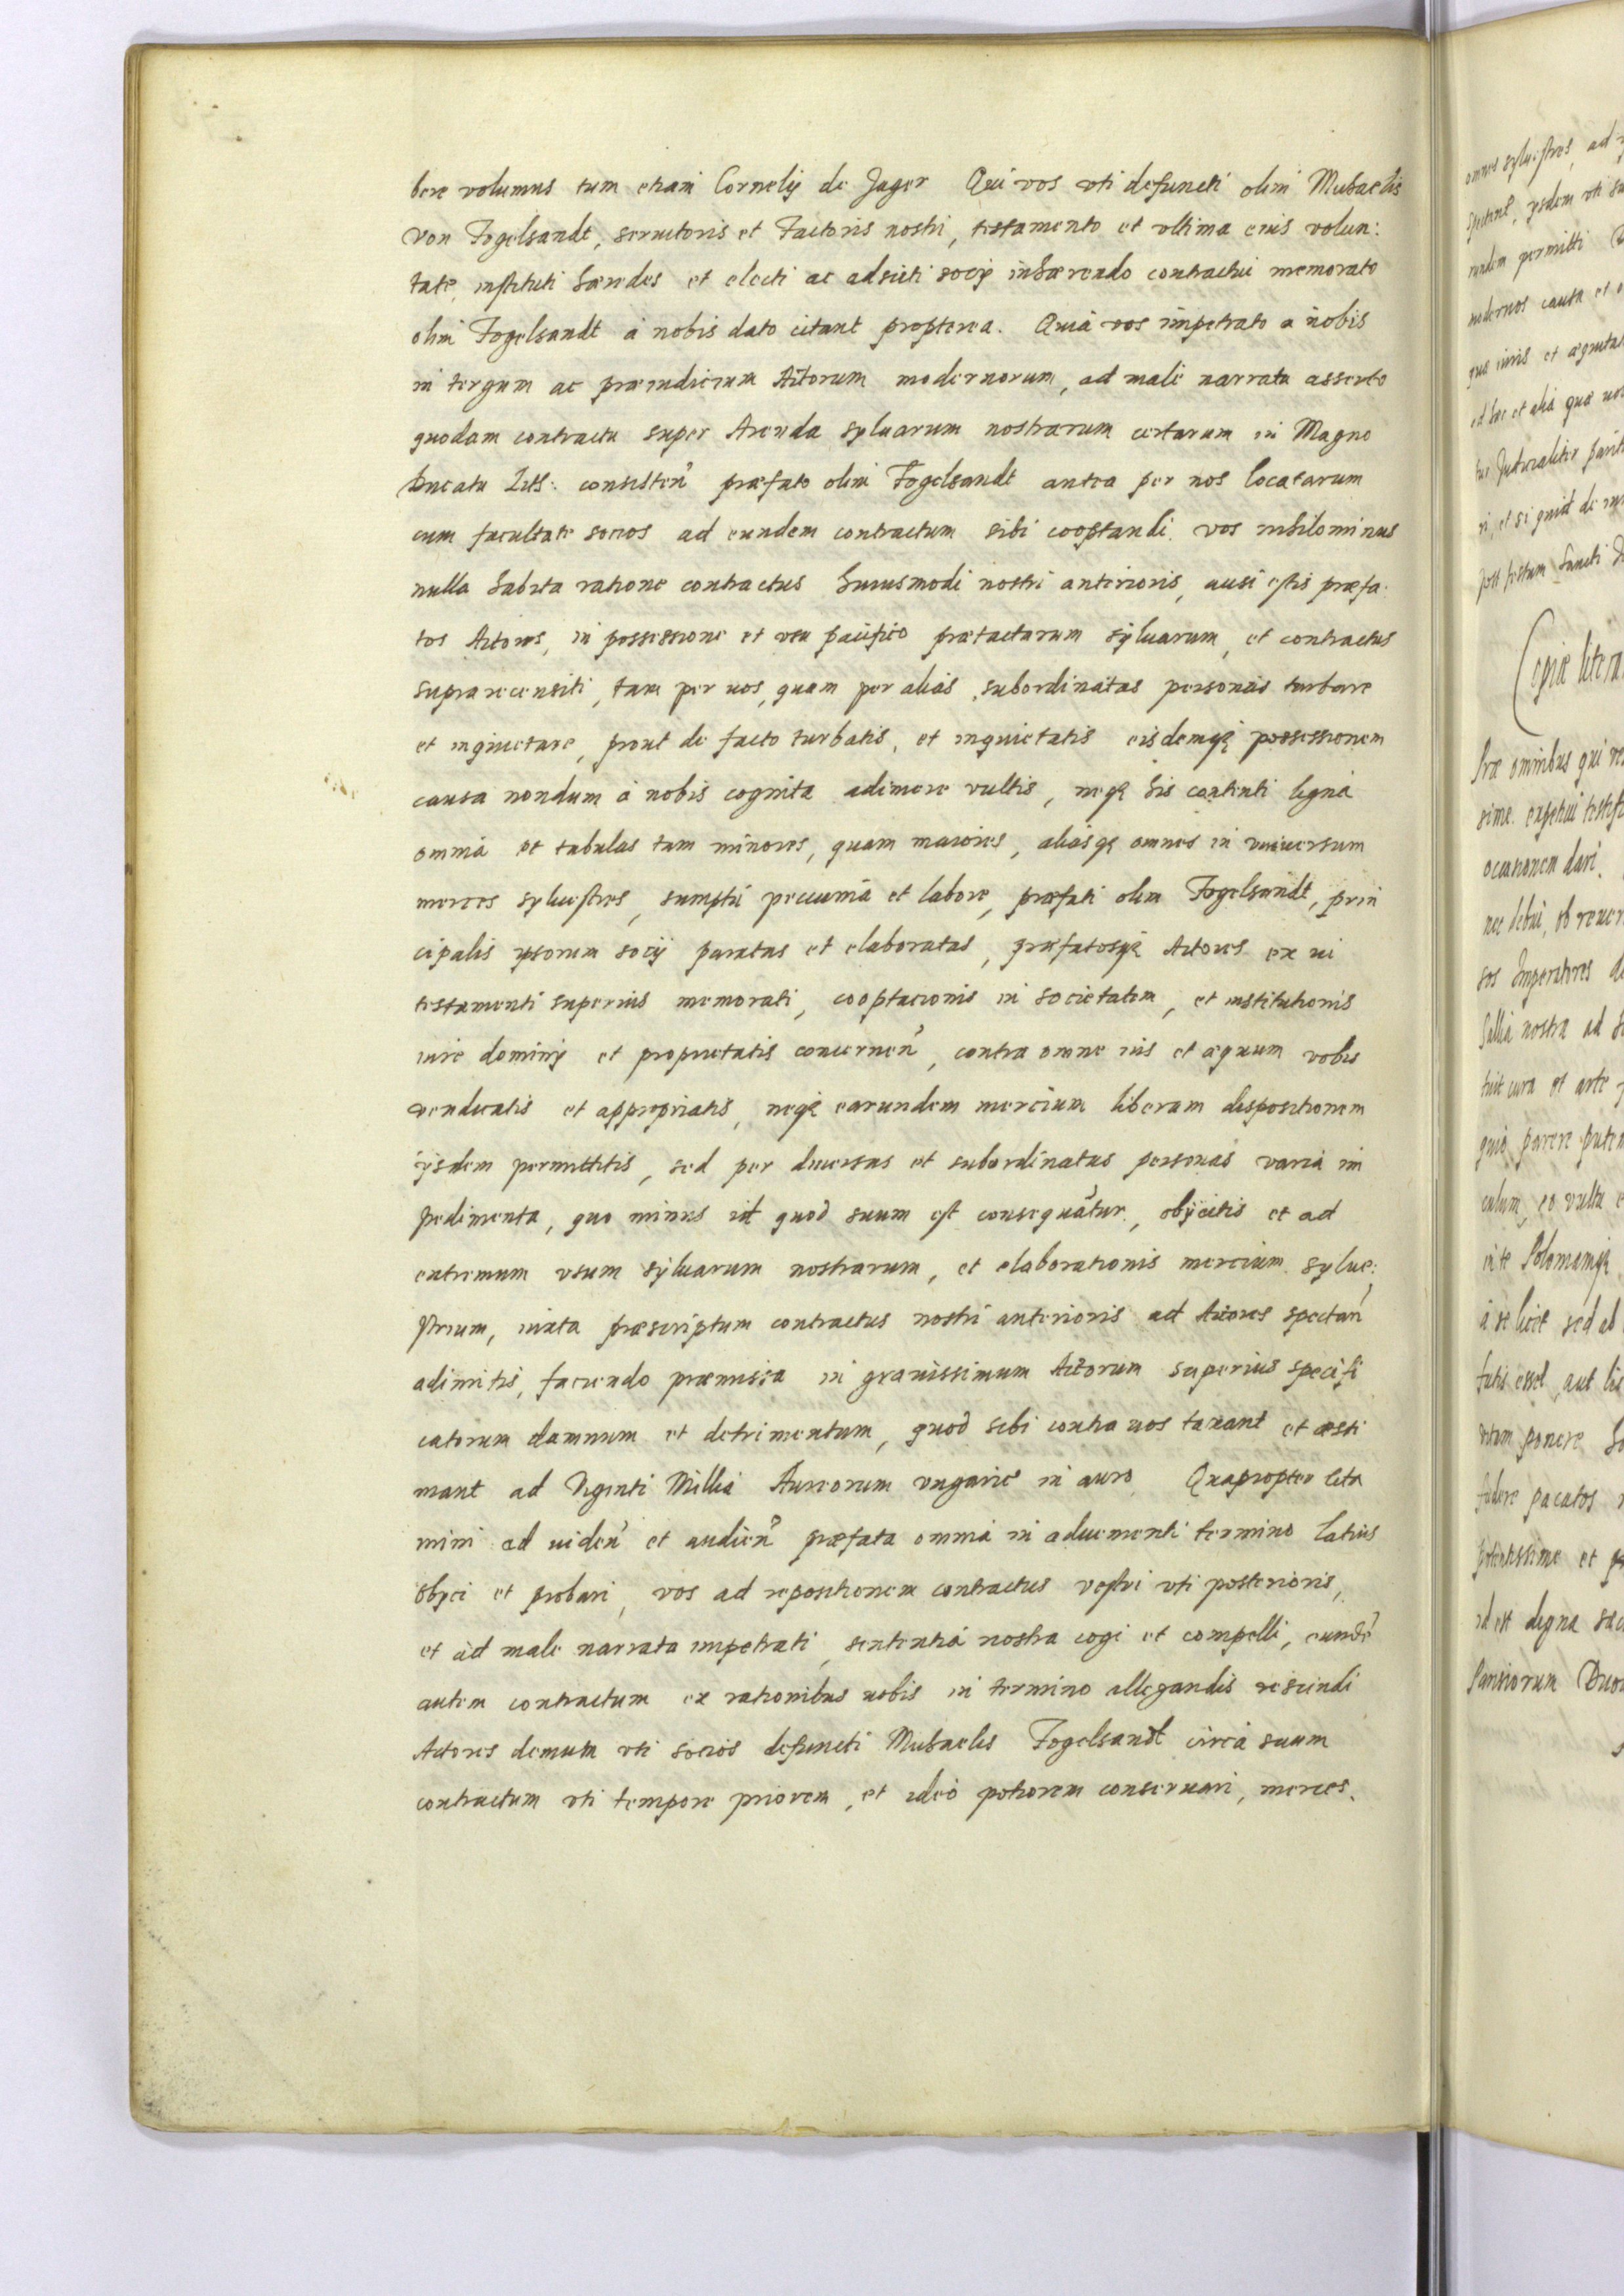 bere volumus tum etiam Cornelij de Jager Qui vos vti defuncti olim Michaelis
von Fogelsandt, seruitoris et Factoris nostri, testamento et vltima eius volun:
tate, instituti haeredes et electi ac adsciti socij inhaerendo contractui memorato
olim Fogelsandt à nobis dato citant propterea. Quia vos impetrato a nobis
in tergum ac praeiudicium Actorum modernorum, ad male narrata asserto
quodam contractu super Arenda syluarum nostrarum certarum in Magno
Ducatu Litt: consisten̄ praefato olim Fogelsandt antea per nos locatarum
cum facultate socios ad eundem contractum sibi cooptandi. vos nihilominus
nulla habita ratione contractus huiusmodi nostri anterioris, ausi estis praefa:
tos Actores, in possessione et vsu pacifico praetactarum syluarum, et contractus
supra recensiti, tam per uos, quam per alias subordinatas personas turbare
et inquietare, prout de facto turbatis, et inquietatis eisdemqȝ possessionem
causa nondum à nobis cognita adimere vultis, neqȝ his contenti ligna
omnia et tabulas tam minores, quam maiores, aliasqȝ omnes in vniuersum
merces syluestres, sumptu pecunia et labore, praefati olim Fogelsandt, prin
cipalis ipsorum socij paratas et elaboratas, praefatosqȝ Actores ex ui
testamenti superius memorati, cooptacionis in societatem, et institutionis
iure dominij et proprietatis concernen̄, contra omne ius et aequum vobis
vendicatis et appropriatis, neqȝ earundem mercium liberam dispositionem
ijsdem permittitis, sed per diuersas et subordinatas personas varia im
pedimenta, quo minus id quod suum est consequātur, obijcitis et ad
extremum vsum syluarum nostrarum, et elaborationis mercium sylue:
strium, iuxta praescriptum contractus nostri anterioris ad Actores spectan̄
adimitis, faciendo praemissa in grauissimum Actorum superius specifi
catorum damnum et detrimentum, quod sibi contra uos taxant et aesti
mant ad Viginti Millia Aureorum vngaric̄ in auro Quapropter cita
mini ad uiden̄ et audien̄ praefata omnia in aduenienti termino latius
obijci et probari, vos ad repositionem contractus vestri vti posterioris,
et ad male narrata impetrati, sententia nostra cogi et compelli, eundē
autem contractum ex rationibus uobis in termino allegandis rescindi
Actores demum vti socios defuncti Michaelis Fogelsandt circa suum
contractum vti tempore priorem, et ideo potiorem conseruari, merces.
omnes syluestres, ad
ijsdem vti
permitti
modernos causa et
iuris et
et alia quae
Judicialiter
et si quid de
post festum Sancti
Copia litera
Prae omnibus qui
occasionem dari.
nec debui, ob
sos Imperatores
nostra ad
cura et arte
quid parere
culum, eo vultu
à se licet sed ab
esset, aut
ponere
pacatos
potentissime et
id est digna